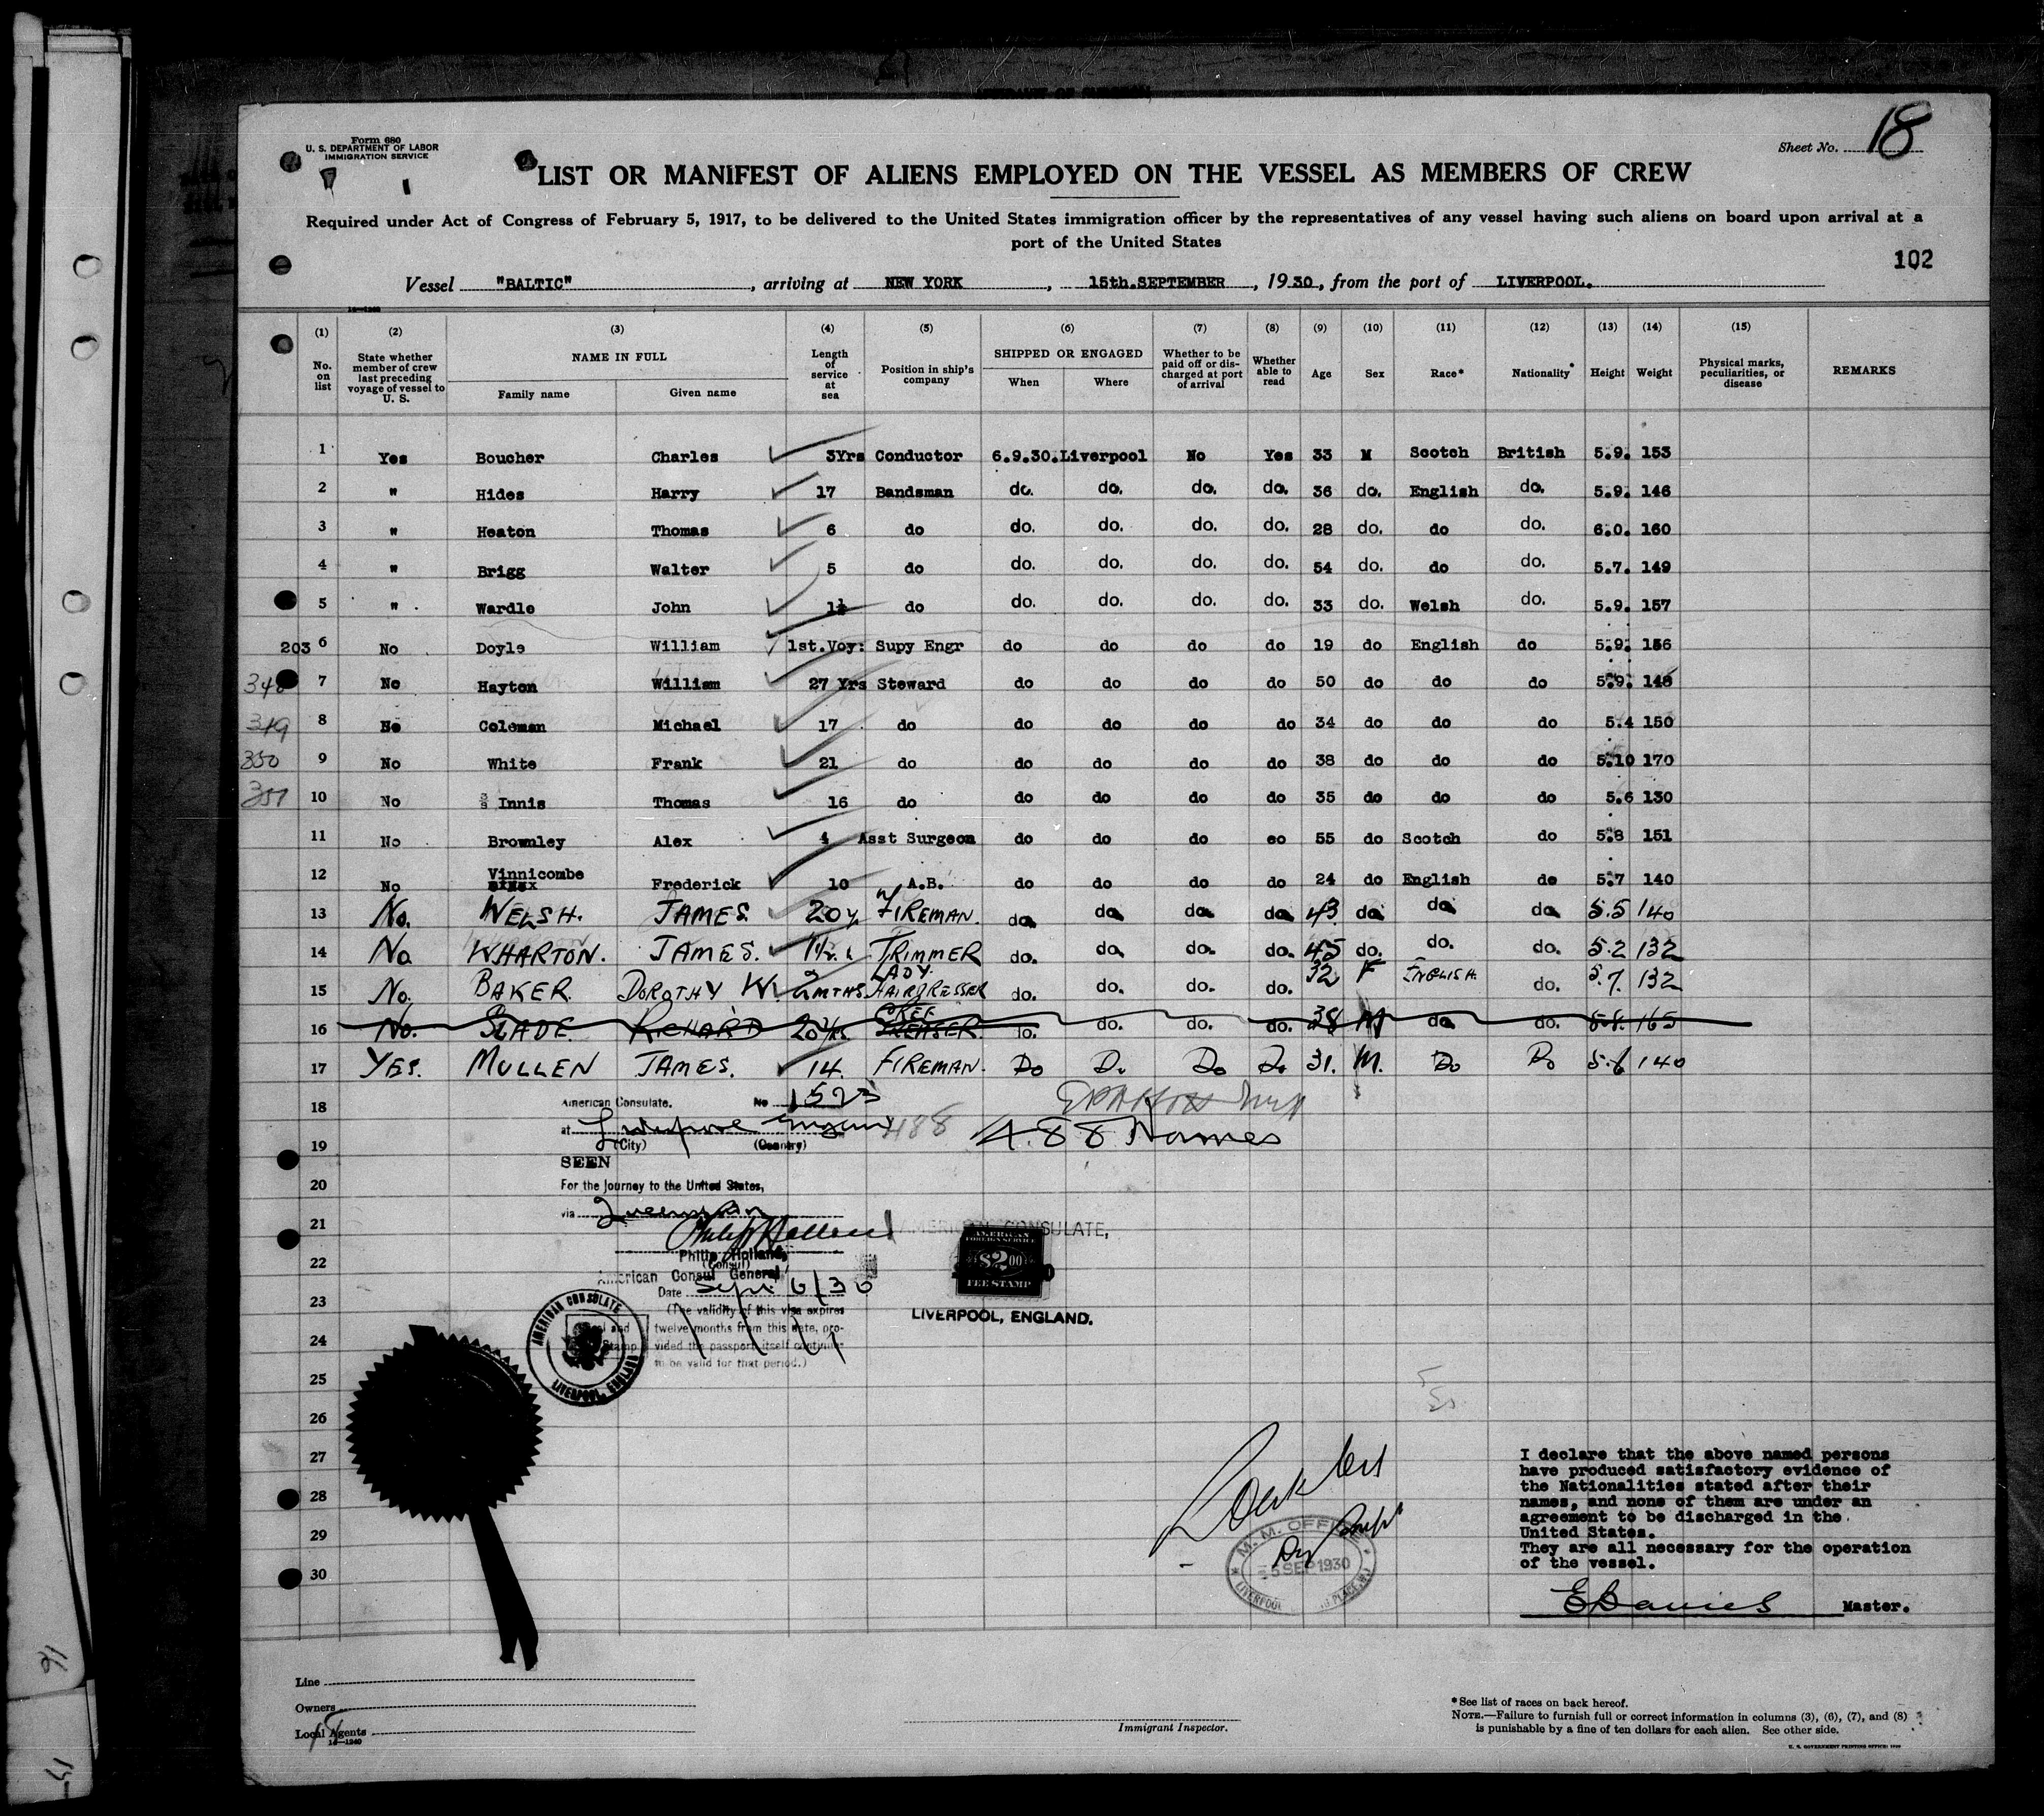 Form 680
U. S. DEPARTMENT OF LABOR
IMMIGRATION SERVICE
Sheet No. 18
LIST OR MANIFEST OF ALIENS EMPLOYED ON THE VESSEL AS MEMBERS OF CREW
Required under Act of Congress of February 5, 1917, to be delivered to the United States immigration officer by the representatives of any vessel having such aliens on board upon arrival at a
port of the United States
102
Vessel "BALTIC", arriving at NEW YORK, 15th.SEPTEMBER, 1930, from the port of LIVERPOOL.
(1) (2) (3) (4) (5) (6) (7) (8) (9) (10) (11) (12) (13) (14) (15)
No. on list State whether member of crew last preceding voyage of vessel to U. S. NAME IN FULL Family name Given name Length of service at sea Position in ship's company SHIPPED OR ENGAGED When Where Whether to be paid off or discharged at port of arrival Whether able to read Age Sex Race* Nationality* Height Weight Physical marks, peculiarities, or disease REMARKS
1 Yes Boucher Charles 3Yrs Conductor 6.9.30. Liverpool No Yes 33 M Scotch British 5.9. 153
2 " Hides Harry 17 Bandsman do. do. do. do. 36 do. English do. 5.9. 146
3 " Heaton Thomas 6 do do. do. do. do. 28 do. do do. 6.0. 160
4 " Brigg Walter 5 do do. do. do. do. 54 do. do do. 5.7. 149
5 " Wardle John 1½ do do. do. do. do. 33 do. Welsh do. 5.9. 157
203 6 No Doyle William 1st.Voy: Supy Engr do do do do 19 do English do 5.9. 156
348 7 No Hayton William 27 Yrs Steward do do do do 50 do do do 5.9. 148
349 8 No Coleman Michael 17 do do do do do 34 do do do 5.4 150
350 9 No White Frank 21 do do do do do 38 do do do 5.10 170
351 10 No Innis Thomas 16 do do do do do 35 do do do 5.6 130
11 No Brownley Alex 4 Asst Surgeon do do do eo 55 do Scotch do 5.8 151
12 No Vinnicombe Frederick 10 A.B. do do do do 24 do English do 5.7 140
13 No. WELSH. JAMES. 20y FIREMAN. do do do do 43 do do do 5.5 140
14 No WHARTON. JAMES. 1½ TRIMMER do. do. do. do. 45 do. do. do. 5.2 132
15 No. BAKER. DOROTHY W. 2MTHS. LADY. HAIRDRESSER do. do. do. do. 32 F ENGLISH. do. 5.7. 132
16 No. SLADE. RICHARD 20 Yrs GREASER. do. do. do. do. 38 M do do. 5.8. 165
17 YES. MULLEN JAMES. 14. FIREMAN. Do Do Do Do 31. M. Do Do 5.6 140
18
American Consulate. No 1523
at Liverpool England 488
(City) (Country)
488 Names
19
SEEN
20
For the Journey to the United States,
via Queenstown
21
AMERICAN CONSULATE,
Philip Holland
Philip Holland,
22
(Consul)
American Consul General
AMERICAN
FOREIGN SERVICE
$2.00
FEE STAMP
Date Sept 6/30
23
LIVERPOOL, ENGLAND.
(The validity of this visa expires
twelve months from this date, pro-
vided the passport itself continues
to be valid for that period.)
AMERICAN CONSULATE
LIVERPOOL, ENGLAND
24
25
26
27
28
29
30
M. M. OFFICE
5 SEP 1930
LIVERPOOL
I declare that the above named persons
have produced satisfactory evidence of
the Nationalities stated after their
names, and none of them are under an
agreement to be discharged in the
United States.
They are all necessary for the operation
of the vessel.
E Davies Master.
Line
Owners
Local Agents
14—1240
Immigrant Inspector.
*See list of races on back hereof.
NOTE.—Failure to furnish full or correct information in columns (3), (6), (7), and (8)
is punishable by a fine of ten dollars for each alien. See other side.